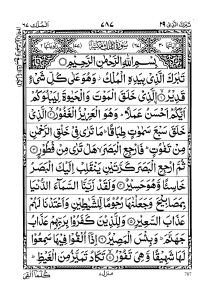 تبرك الذي ٢٩
٧٨٧
الملك ٦٧
بِسْمِ اللهِ الرَّحْمٰنِ الرَّحِيْمِ
تَبٰرَكَ الَّذِيْ بِيَدِهِ الْمُلْكُ وَهُوَ عَلٰى كُلِّ شَيْءٍ
قَدِيْرُۨ الَّذِيْ خَلَقَ الْمَوْتَ وَالْحَيٰوةَ لِيَبْلُوَكُمْ
اَيُّكُمْ اَحْسَنُ عَمَلًا وَهُوَ الْعَزِيْزُ الْغَفُوْرُ الَّذِيْ
خَلَقَ سَبْعَ سَمٰوٰتٍ طِبَاقًا مَا تَرٰى فِيْ خَلْقِ الرَّحْمٰنِ
مِنْ تَفٰوُتٍ فَارْجِعِ الْبَصَرَ هَلْ تَرٰى مِنْ فُطُوْرٍ
ثُمَّ ارْجِعِ الْبَصَرَ كَرَّتَيْنِ يَنْقَلِبْ اِلَيْكَ الْبَصَرُ
خَاسِئًا وَّهُوَ حَسِيْرٌ وَلَقَدْ زَيَّنَّا السَّمَآءَ الدُّنْيَا
بِمَصَابِيْحَ وَجَعَلْنٰهَا رُجُوْمًا لِّلشَّيٰطِيْنِ وَاَعْتَدْنَا لَهُمْ
عَذَابَ السَّعِيْرِ وَلِلَّذِيْنَ كَفَرُوْا بِرَبِّهِمْ عَذَابُ
جَهَنَّمَ وَبِئْسَ الْمَصِيْرُ اِذَآ اُلْقُوْا فِيْهَا سَمِعُوْا
لَهَا شَهِيْقًا وَّهِيَ تَفُوْرُ تَكَادُ تَمَيَّزُ مِنَ الْغَيْظِ
كُلَّمَآ اُلْقِيَ